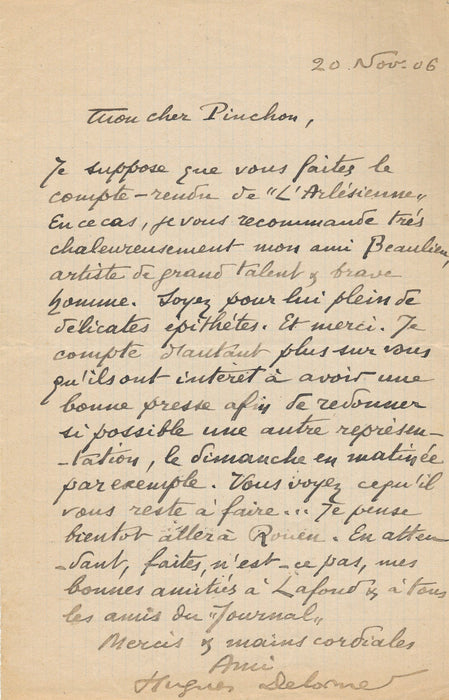 20 Nov. 06
Mon cher Pinchon,
Je suppose que vous faites le
compte-rendu de "L'Arlésienne"
En ce cas, je vous recommande très
chaleureusement mon ami Beaulieu,
artiste de grand talent & brave
homme. Soyez pour lui plein de
délicates épithètes. Et merci. Je
compte d'autant plus sur vous
qu'ils ont intéret à avoir une
bonne presse afin de redonner
si possible une autre représen-
-tation, le dimanche en matinée
par exemple. Vous voyez ce qu'il
vous reste à faire... Je pense
bientot aller à Rouen. En atten
-dant, faites, n'est-ce pas, mes
bonnes amitiés à Lafond & à tous
les amis du "Journal"
Mercis & mains cordiales
Ami
Hugues Delorme